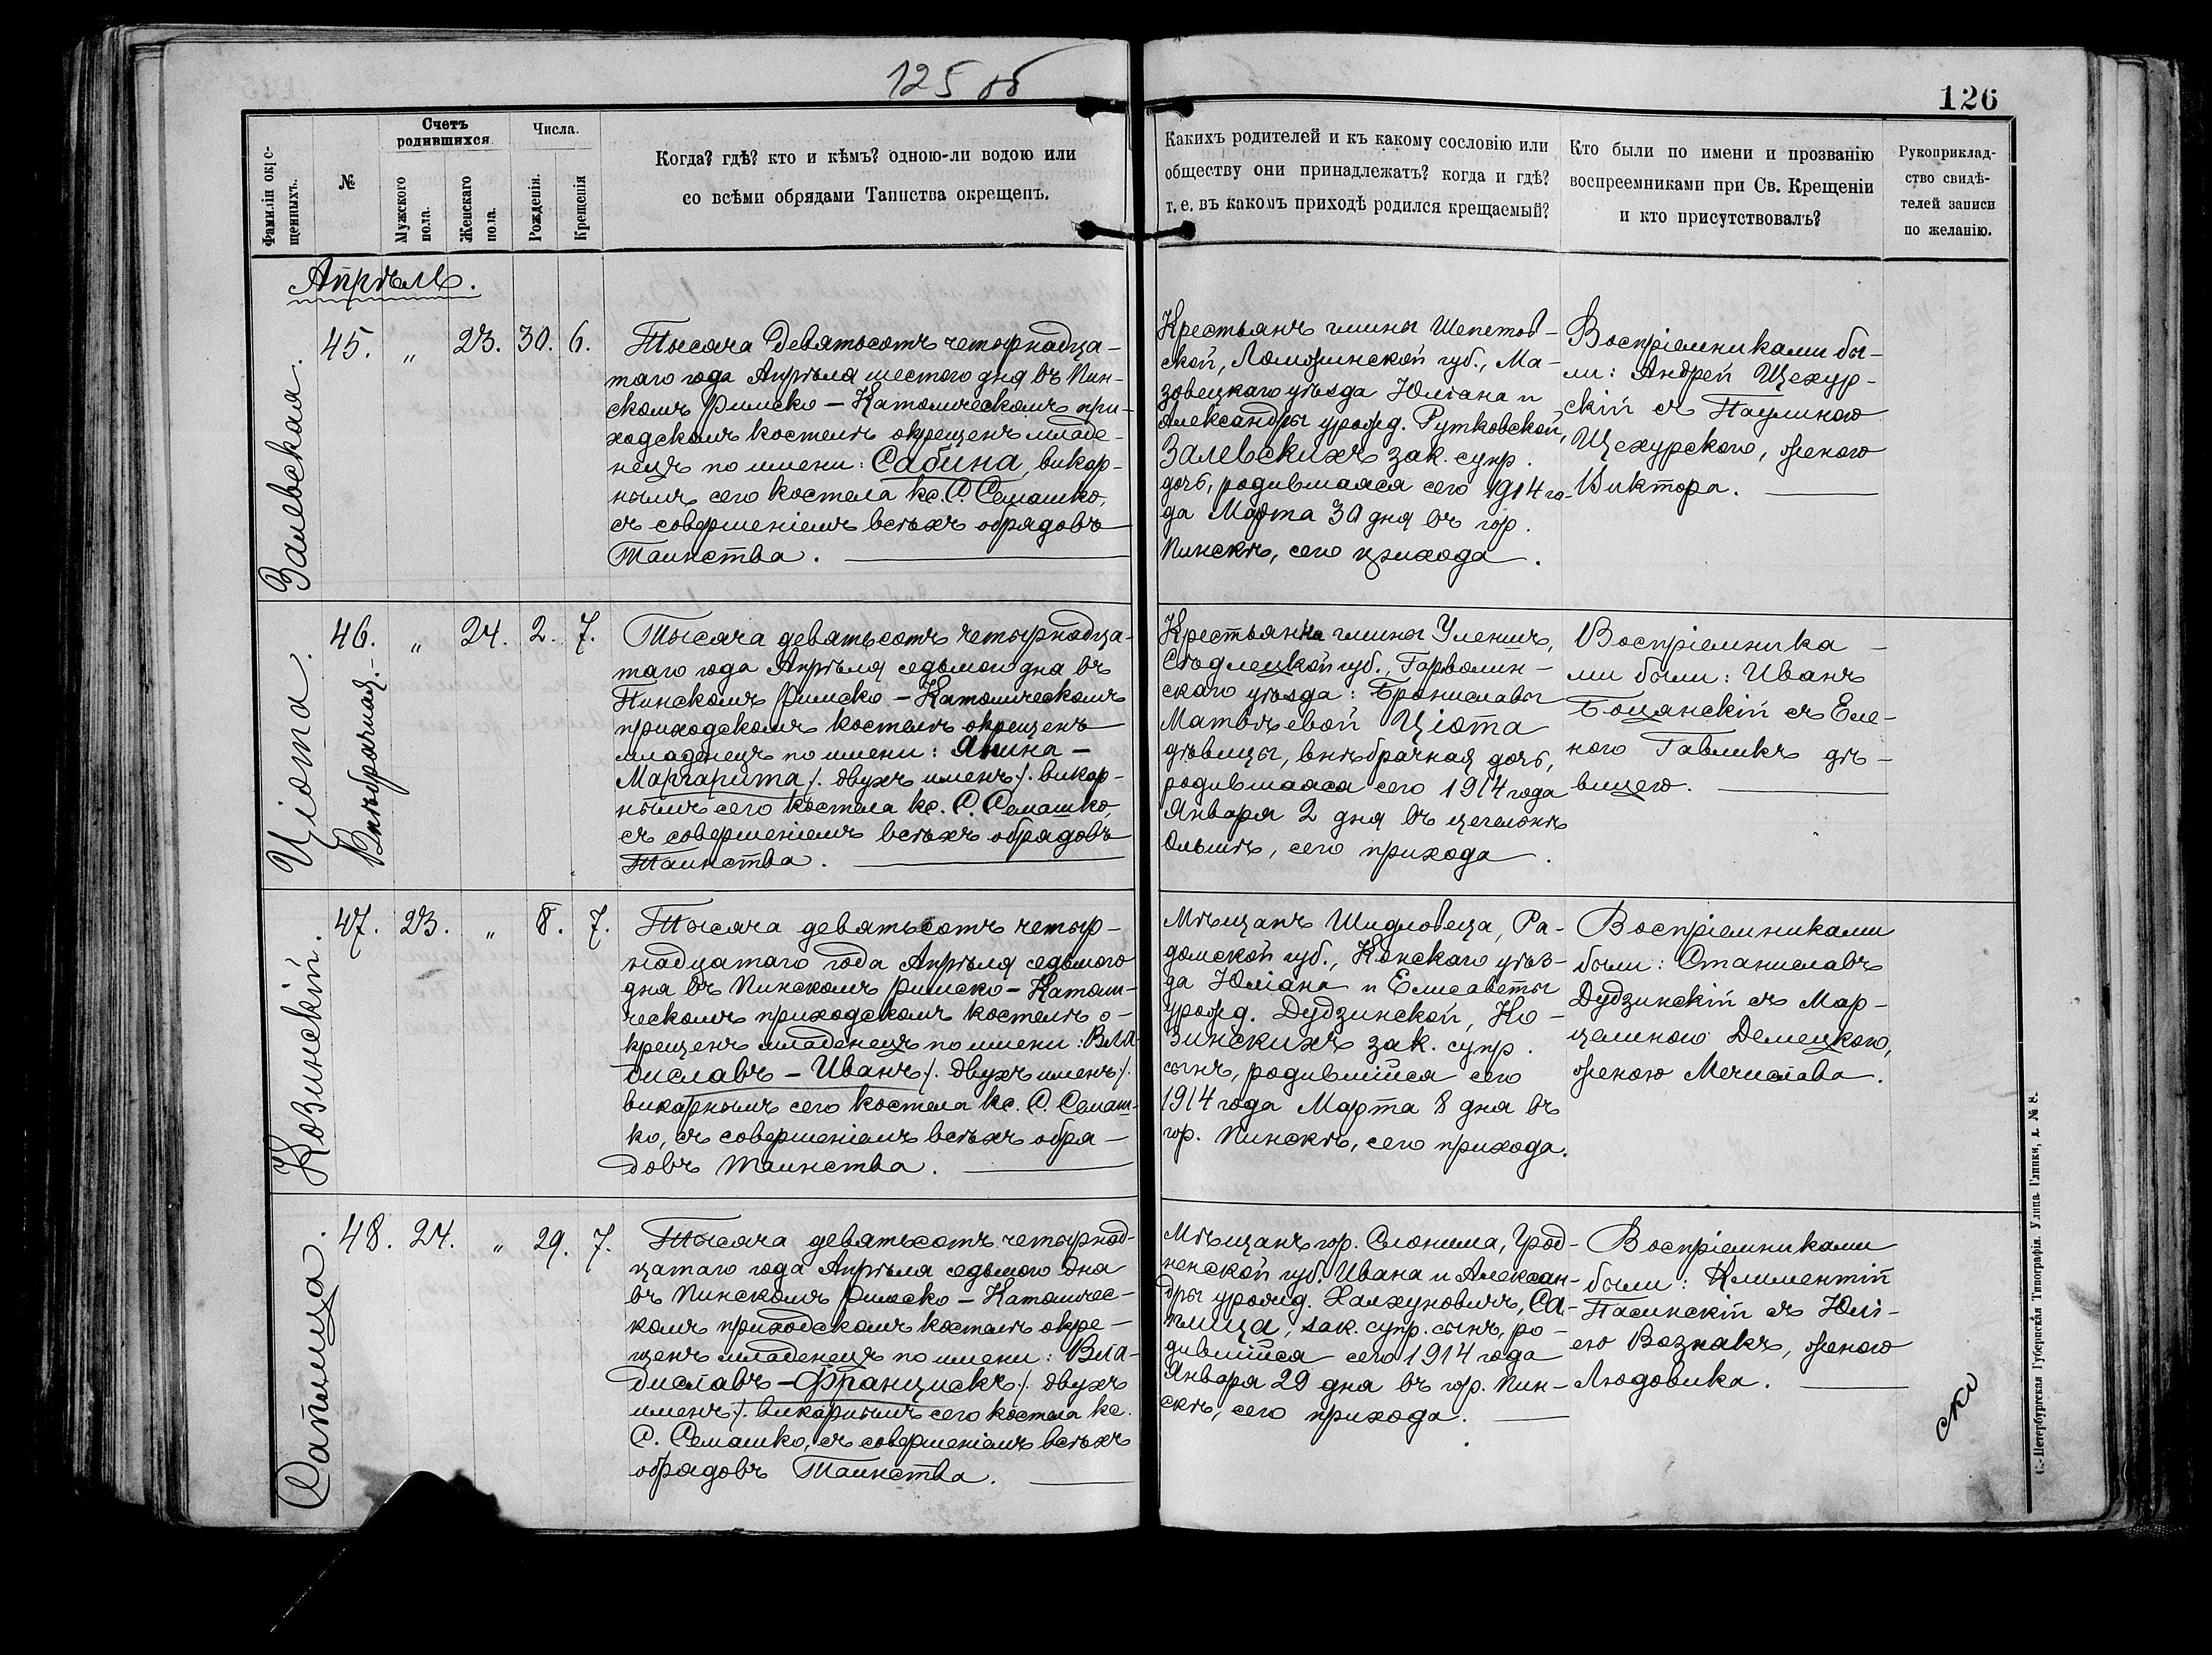 125 об
126
Фамиліи окре-
щенныхъ.
№
Счетъ
родившихся.
Мужскаго
пола.
Женскаго
пола.
Числа.
Рожденія.
Крещенія
Когда? гдѣ? кто и кѣмъ? одною-ли водою или
со всѣми обрядами Таинства окрещенъ.
Какихъ родителей и къ какому сословію или
обществу они принадлежатъ? когда и гдѣ?
т. е. въ какомъ приходѣ родился крещаемый?
Кто были по имени и прозванію
воспреемниками при Св. Крещеніи
и кто присутствовалъ?
Рукоприклад-
ство свидѣ-
телей записи
по желанію.
Апрѣль.
Залевская.
45. „ 23. 30. 6.
Тысяча Девятьсотъ четырнадца-
таго года Апрѣля шестого дня въ Пин-
скомъ Римско-Католическомъ при-
ходскомъ костелѣ окрещенъ младе-
нецъ по имени: Сабина, викар-
нымъ сего костела кс. С. Семашко,
съ совершеніемъ всѣхъ обрядовъ
Таинства.
Крестьянъ гмины Шепетов-
ской, Ломжинской губ., Ма-
зовецкаго уѣзда Юліана и
Александры урожд. Рутковской,
Залевскихъ зак. супр.
дочь, родившаяся сего 1914 го-
да Марта 30 дня въ гор.
Пинскѣ, сего прихода.
Воспріемниками бы-
ли: Андрей Щехур-
скій съ Паулиною
Щехурскою, женою
Виктора.
Ціота.
Внѣбрачная.
46. „ 24. 2. 7.
Тысяча девятьсотъ четырнадца-
таго года Апрѣля седьмого дня въ
Пинскомъ Римско-Католическомъ
приходскомъ костелѣ окрещенъ
младенецъ по имени: Янина-
Маргарита /. двухъ именъ/. викар-
нымъ сего костела кс. С. Семашко,
съ совершеніемъ всѣхъ обрядовъ
Таинства.
Крестьянки гмины Уленжъ,
Сѣдлецкой губ., Гарволин-
скаго уѣзда: Брониславы
Матвѣевой Ціота
дѣвицы, внѣбрачная дочь,
родившаяся сего 1914 года
Января 2 дня въ цегельнѣ
Ольшѣ, сего прихода.
Воспріемника-
ми были: Иванъ
Боцянскій съ Еле-
ною Гавликъ дѣ-
вицею.
Козинскій.
47. 23. „ 8. 7.
Тысяча девятьсотъ четыр-
надцатаго года Апрѣля седьмого
дня въ Пинскомъ Римско-Католи-
ческомъ приходскомъ костелѣ о-
крещенъ младенецъ по имени: Вла-
диславъ-Иванъ /. двухъ именъ/.
викарнымъ сего костела кс. С. Семаш-
ко, съ совершеніемъ всѣхъ обря-
довъ Таинства.
Мѣщанъ Шидловеца, Ра-
домской губ., Конскаго уѣз-
да Юліана и Елисаветы
урожд. Дудзинской, Ко-
зинскихъ зак. супр.
сынъ, родившійся сего
1914 года Марта 8 дня въ
гор. Пинскѣ, сего прихода.
Воспріемниками
были: Станиславъ
Дудзинскій съ Мар-
целиною Демецкою,
женою Мечислава.
Саплица.
48. 24. „ 29. 7.
Тысяча девятьсотъ четырнад-
цатаго года Апрѣля седьмого дня
въ Пинскомъ Римско-Католичес-
комъ приходскомъ костелѣ окре-
щенъ младенецъ по имени: Вла-
диславъ-Францискъ /. двухъ
именъ/. викарнымъ сего костела кс.
С. Семашко, съ совершеніемъ всѣхъ
обрядовъ Таинства.
Мѣщанъ гор. Слонима, Грод-
ненской губ. Ивана и Алексан-
дры урожд. Халхуновичъ, Са-
плица, зак. супр. сынъ, ро-
дившійся сего 1914 года
Января 29 дня въ гор. Пин-
скѣ, сего прихода.
Воспріемниками
были: Климентій
Пасинскій съ Юлі-
ею Вознякъ, женою
Людовика.
ска
С.-Петербургская Губернская Типографія. Улица Глинки, д. № 8.